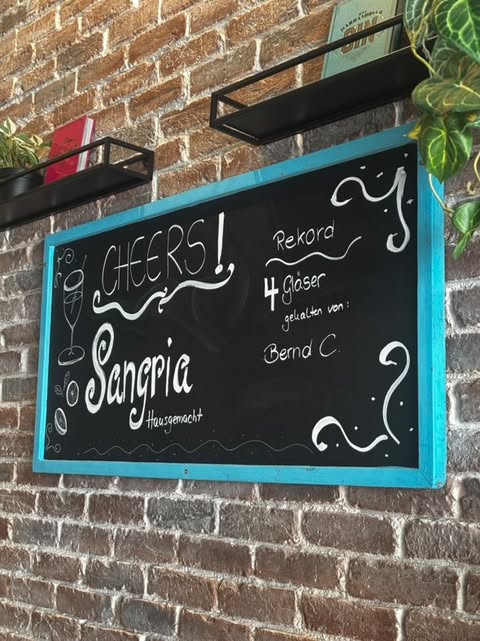 GIN
CHEERS!
Sangria
Hausgemacht
Rekord
4 Gläser
gehalten von:
Bernd C.